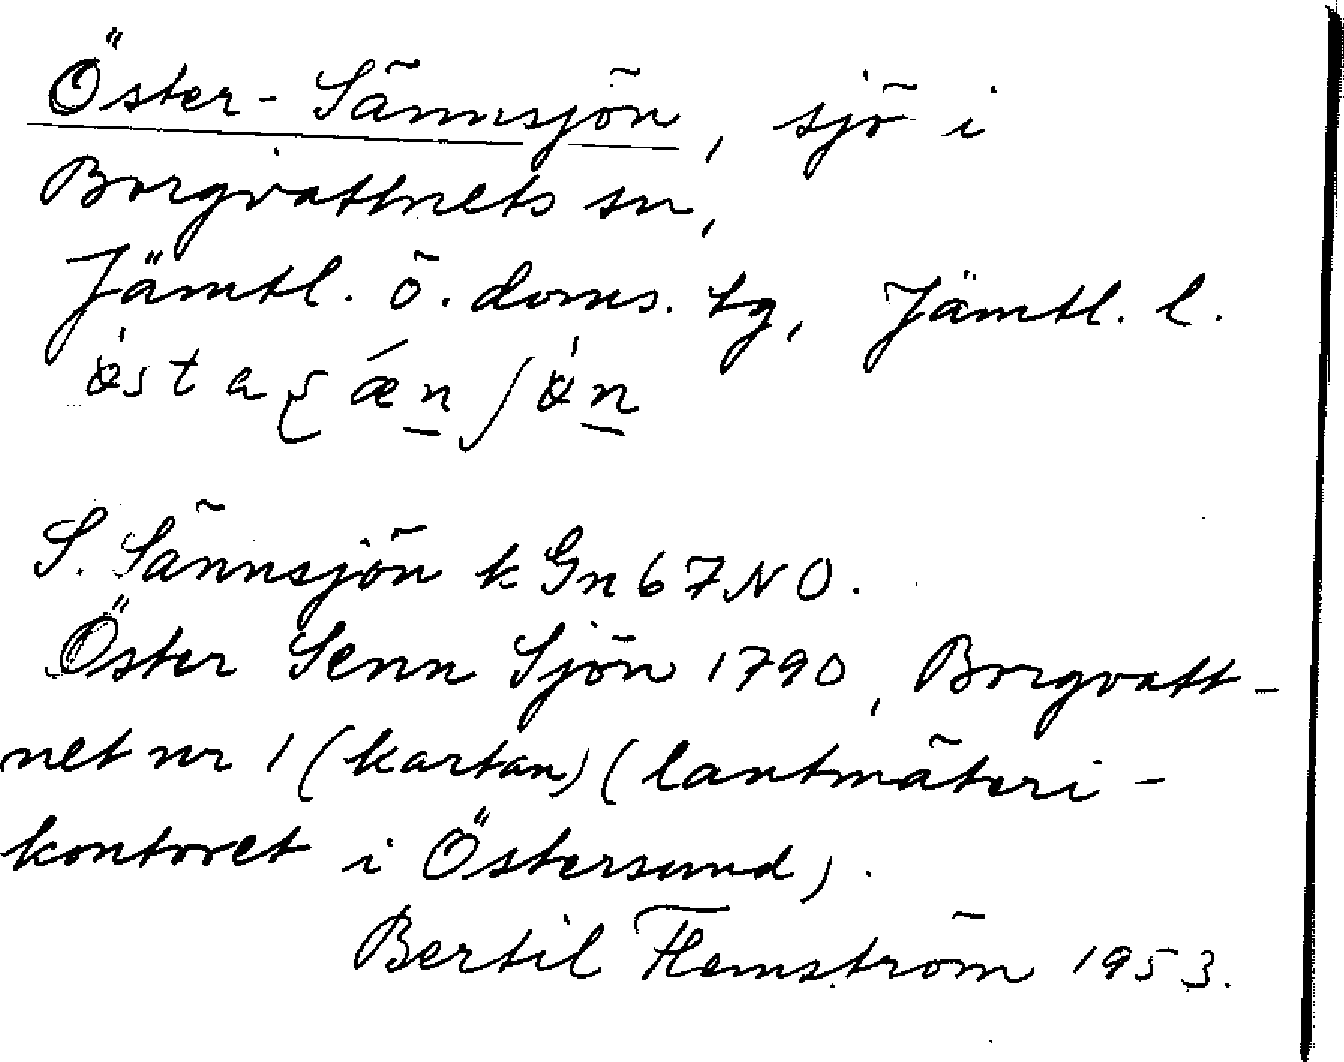 Öster-Sännsjön, sjö i
Borgvattnets sn,
Jämtl. ö. doms. tg, Jämtl. l.
S. Sännsjön k Gn 67 NO.
Öster Senn Sjön 1790, Borgvatt-
net nr 1 (kartan) (lantmäteri-
kontoret i Östersund).
Bertil Flemström 1953.